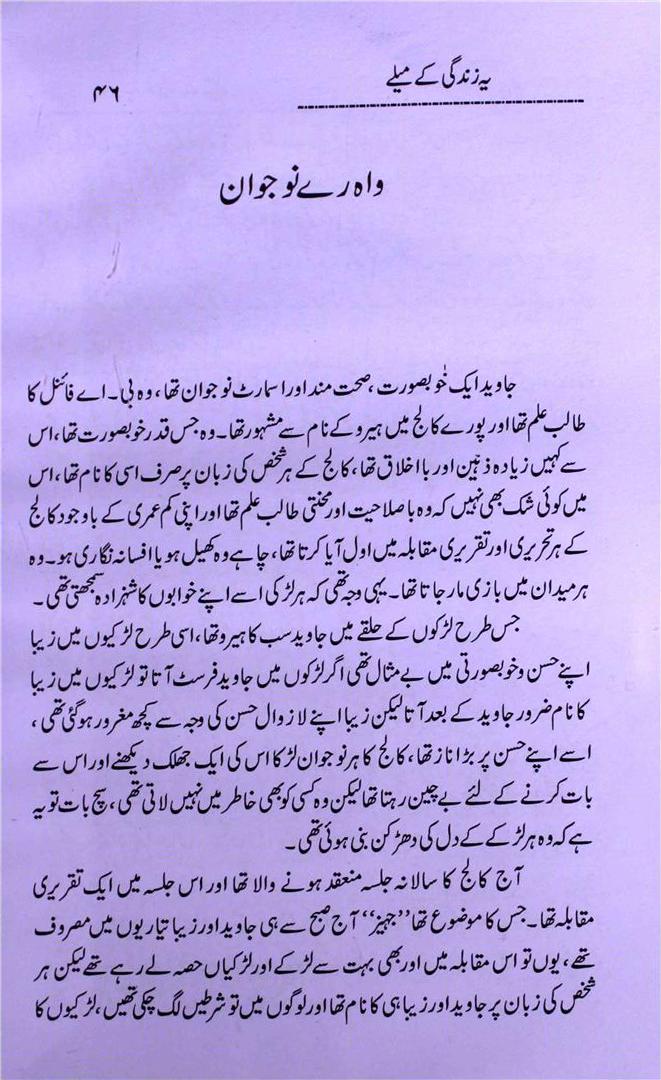 یہ زندگی کے میلے
۴۶
واہ رے نوجوان
جاوید ایک خوبصورت، صحت مند اور اسمارٹ نوجوان تھا، وہ بی۔ اے فائنل کا
طالب علم تھا اور پورے کالج میں ہیرو کے نام سے مشہور تھا۔ وہ جس قدر خوبصورت تھا، اس
سے کہیں زیادہ ذہین اور بااخلاق تھا، کالج کے ہر شخص کی زبان پر صرف اسی کا نام تھا، اس
میں کوئی شک بھی نہیں کہ وہ باصلاحیت اور محنتی طالب علم تھا اور اپنی کم عمری کے باوجود کالج
کے ہر تحریری اور تقریری مقابلہ میں اول آیا کرتا تھا، چاہے وہ کھیل ہو یا افسانہ نگاری ہو۔ وہ
ہر میدان میں بازی مار جاتا تھا۔ یہی وجہ تھی کہ ہر لڑکی اسے اپنے خوابوں کا شہزادہ سمجھتی تھی۔
جس طرح لڑکوں کے حلقے میں جاوید سب کا ہیرو تھا، اسی طرح لڑکیوں میں زیبا
اپنے حسن و خوبصورتی میں بے مثال تھی اگر لڑکوں میں جاوید فرسٹ آتا تو لڑکیوں میں زیبا
کا نام ضرور جاوید کے بعد آتا لیکن زیبا اپنے لازوال حسن کی وجہ سے کچھ مغرور ہوگئی تھی،
اسے اپنے حسن پر بڑا ناز تھا، کالج کا ہر نوجوان لڑکا اس کی ایک جھلک دیکھنے اور اس سے
بات کرنے کے لئے بے چین رہتا تھا لیکن وہ کسی کو بھی خاطر میں نہیں لاتی تھی، سچ بات تو یہ
ہے کہ وہ ہر لڑکے کے دل کی دھڑکن بنی ہوئی تھی۔
آج کالج کا سالانہ جلسہ منعقد ہونے والا تھا اور اس جلسہ میں ایک تقریری
مقابلہ تھا۔ جس کا موضوع تھا ”جہیز“ آج صبح سے ہی جاوید اور زیبا تیاریوں میں مصروف
تھے، یوں تو اس مقابلہ میں اور بھی بہت سے لڑکے اور لڑکیاں حصہ لے رہے تھے لیکن ہر
شخص کی زبان پر جاوید اور زیبا ہی کا نام تھا اور لوگوں میں تو شرطیں لگ چکی تھیں، لڑکیوں کا